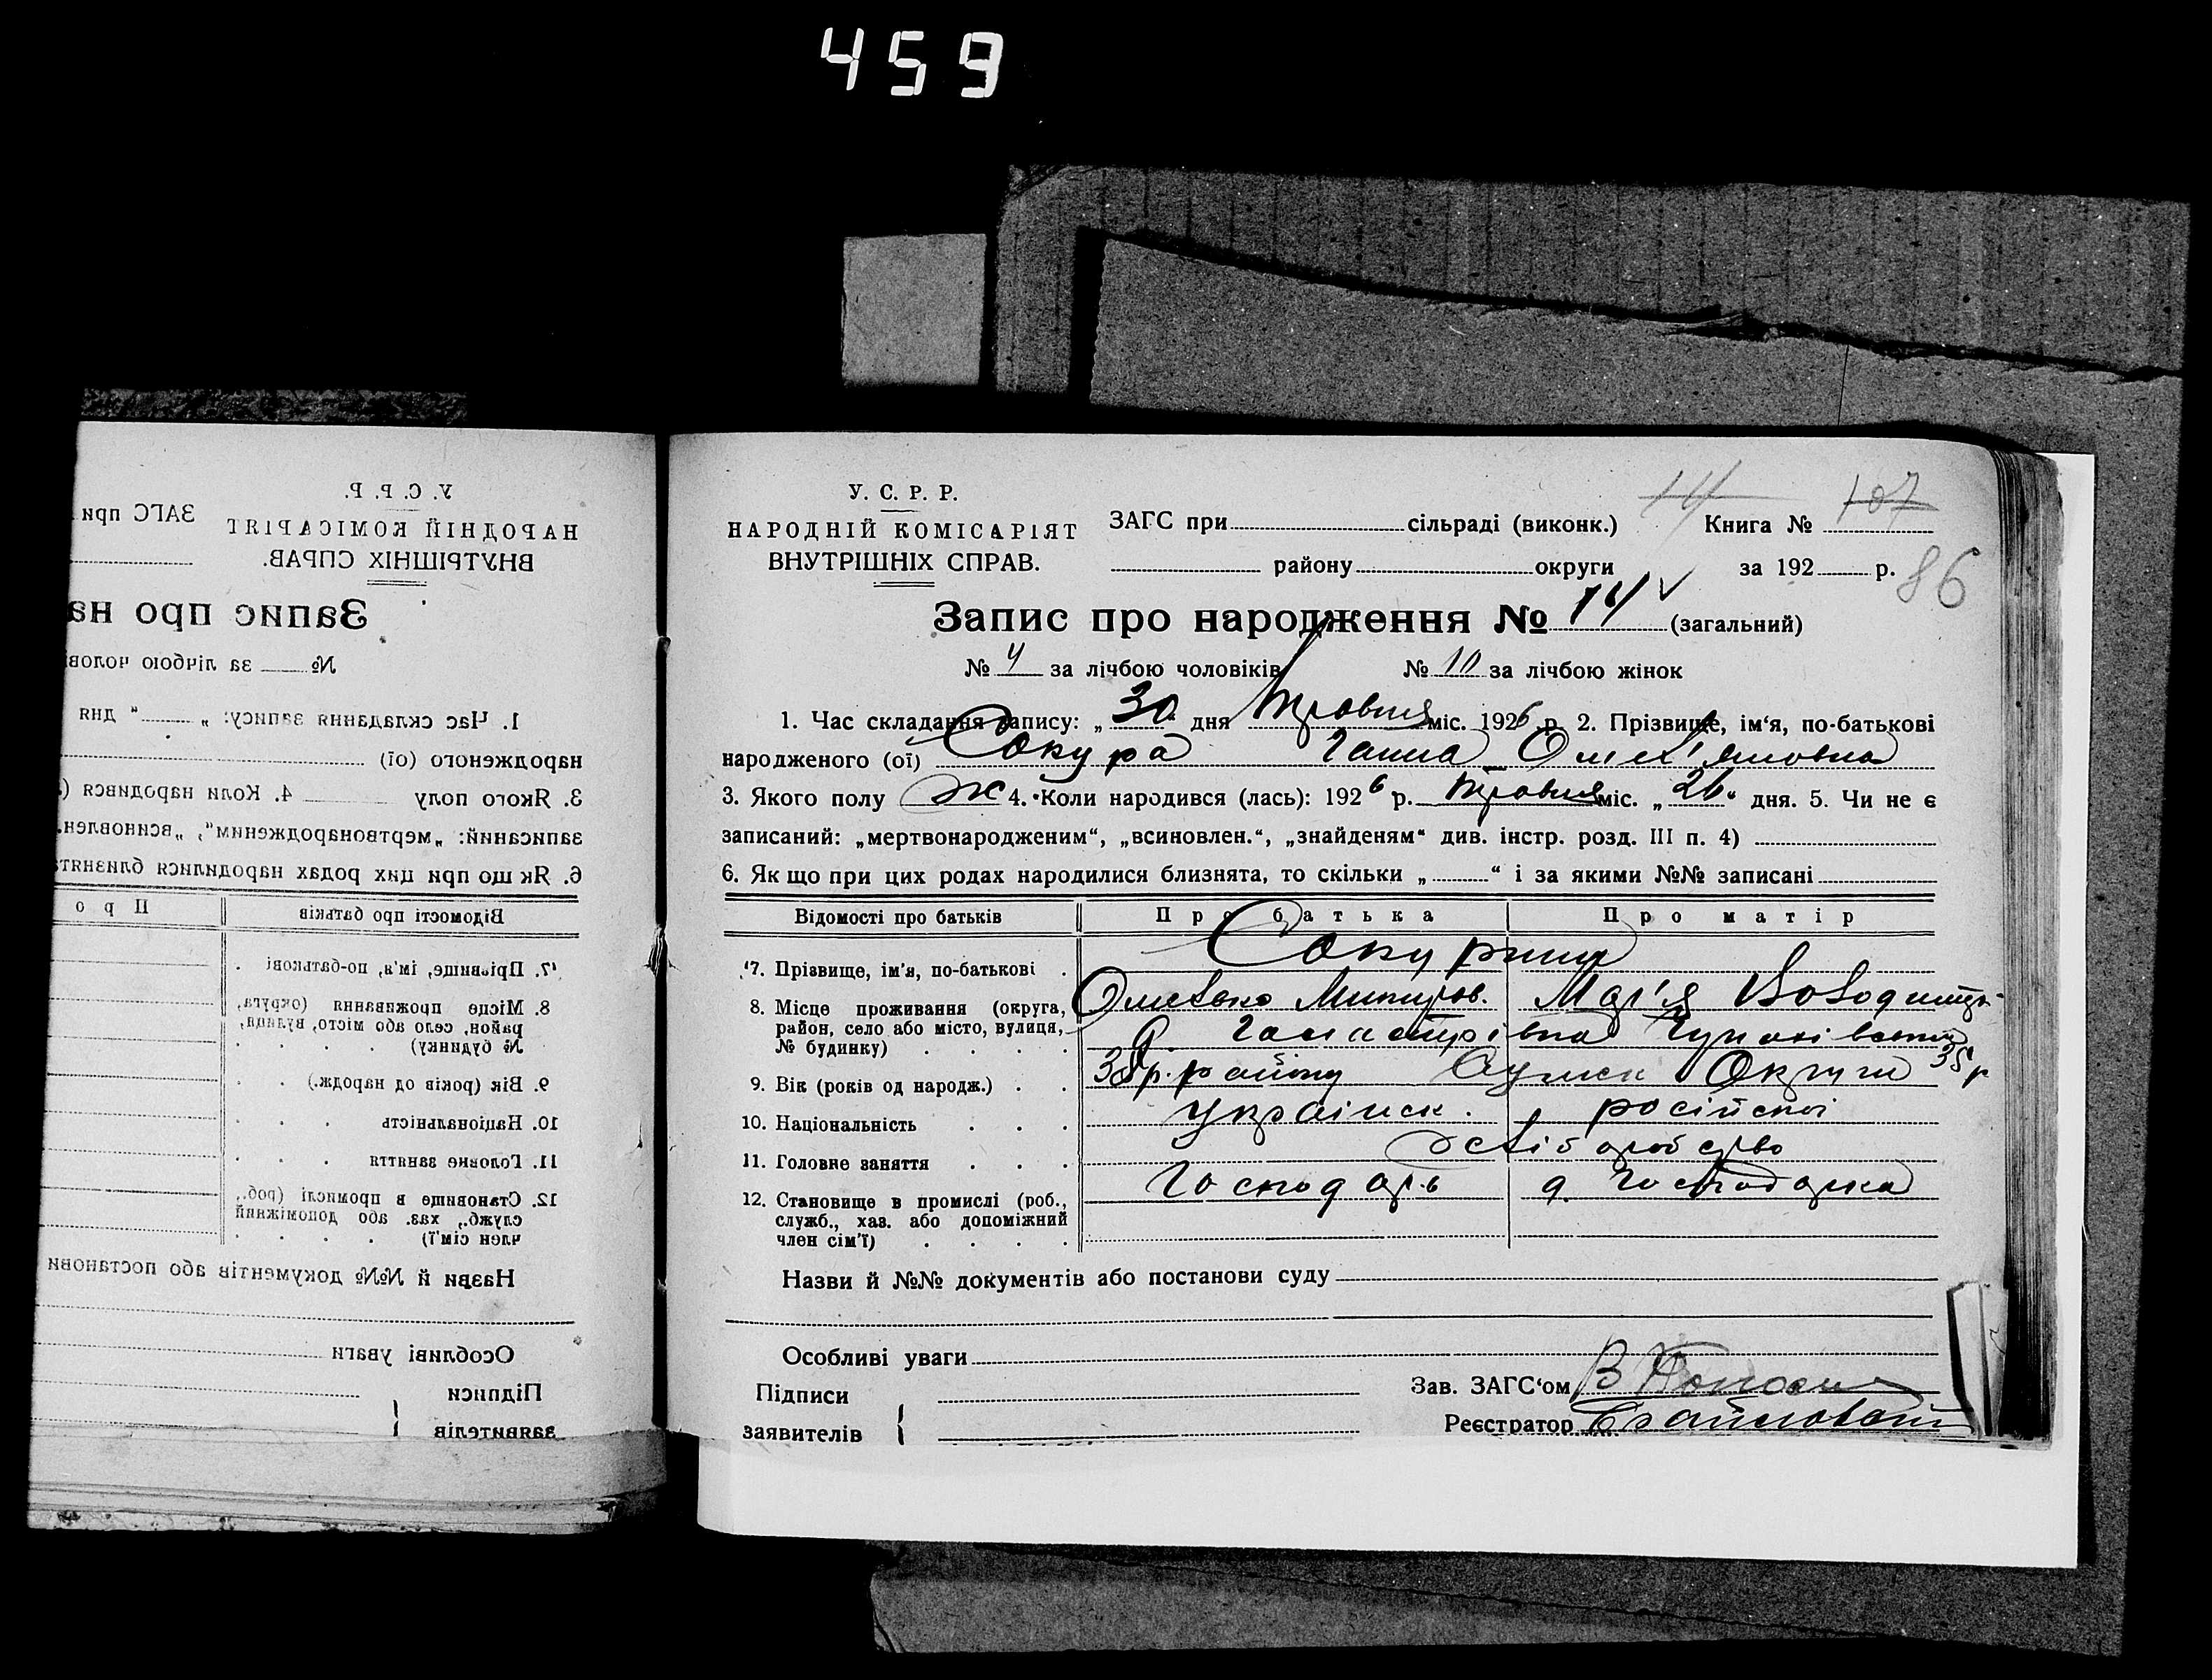 459
У. С. Р. Р.
НАРОДНІЙ КОМІСАРІЯТ
ВНУТРІШНІХ СПРАВ.
ЗАГС при
Запис про на
№ за лічбою чолові
1. Час складання запису: „ “ дня
народженого (ої)
3. Якого полу 4. Коли народився (
записаний: „мертвонародженим“, „всиновлен.
6. Як що при цих родах народилися близнята
Відомості про батьків Про
7. Прізвище, ім'я, по-батькові
8. Місце проживання (округа,
район, село або місто, вулиця,
№ будинку)
9. Вік (років од народж.)
10. Національність
11. Головне заняття
12. Становище в промислі (роб.,
служб., хаз. або допоміжний
член сім'ї)
Назви й №№ документів або постанови
Особливі уваги
Підписи
заявителів
У. С. Р. Р.
НАРОДНІЙ КОМІСАРІЯТ
ВНУТРІШНІХ СПРАВ.
ЗАГС при сільраді (виконк.) 14 Книга № 107
району округи за 192 р. 86
Запис про народження № 14 (загальний)
№ 4 за лічбою чоловіків № 10 за лічбою жінок
1. Час складання запису: „ 30 “ дня Травня міс. 1926 р. 2. Прізвище, ім‘я, по-батькові
народженого (ої) Сокура Ганна Омел'яновна
3. Якого полу ж 4. Коли народився (лась): 1926 р. Травня міс. „ 26 “ дня. 5. Чи не є
записаний: „мертвонародженим“, „всиновлен.“, „знайденям“ див. інстр. розд. III п. 4)
6. Як що при цих родах народилися близнята, то скільки „ “ і за якими №№ записані
Відомості про батьків Про батька Про матір
7. Прізвище, ім'я, по-батькові
8. Місце проживання (округа, Мар'я
район, село або місто, вулиця,
№ будинку)
9. Вік (років од народж.) 38 р. району Сумск Округи 38 р
10. Національність Українск. російскої
11. Головне заняття хліборобство
12. Становище в промислі (роб., Господарь д. Господарка
служб., хаз. або допоміжний
член сім'ї)
Назви й №№ документів або постанови суду
Особливі уваги
Підписи
заявителів
Зав. ЗАГС‘ом
Реєстратор